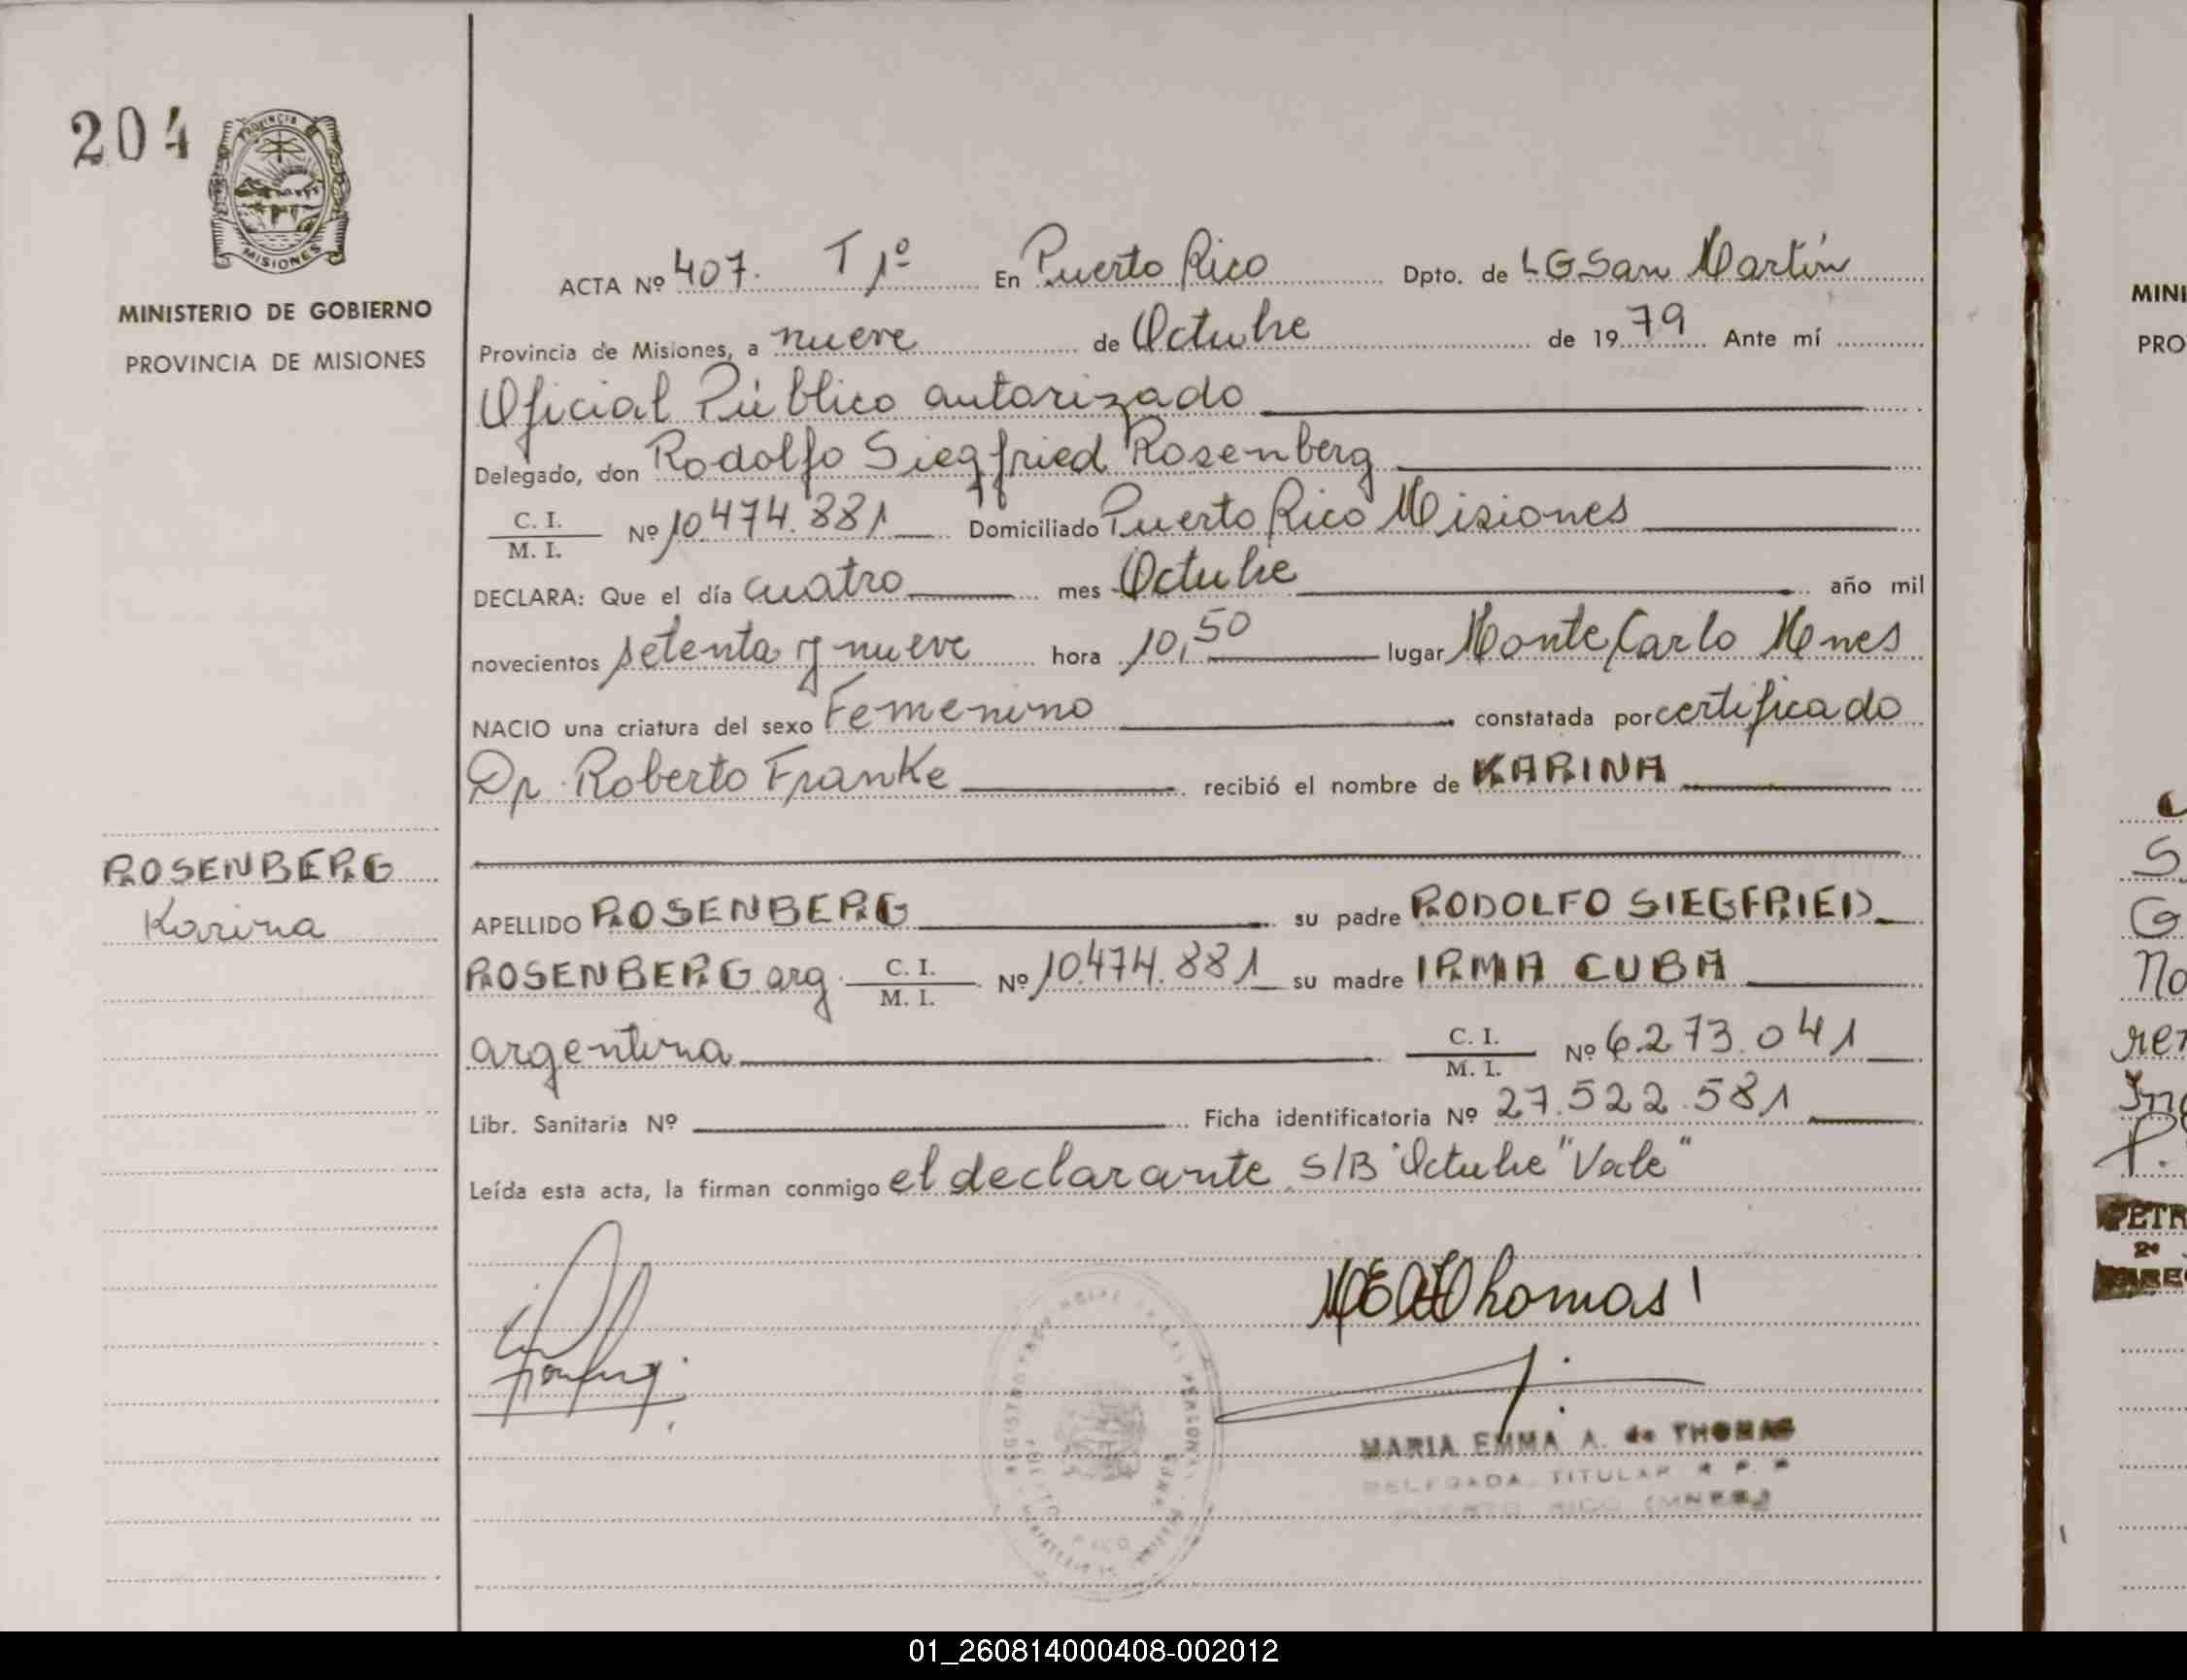 204
PROVINCIA
MISIONES
MINISTERIO DE GOBIERNO
PROVINCIA DE MISIONES
ROSENBERG
Karina
ACTA Nº 407. T 1º En Puerto Rico Dpto. de LGSan Martín
Provincia de Misiones, a nueve de Octubre de 1979 Ante mí
Oficial Público autorizado
Delegado, don Rodolfo Siegfried Rosenberg
C. I.
M. I. Nº 10.474.881 Domiciliado Puerto Rico Misiones
DECLARA: Que el día cuatro mes Octubre año mil
novecientos setenta y nueve hora 10,50 lugar Monte Carlo Mnes
NACIO una criatura del sexo Femenino constatada por certificado
Dr. Roberto Franke recibió el nombre de KARINA
APELLIDO ROSENBERG su padre RODOLFO SIEGFRIED
ROSENBERG arg. C. I. M. I. Nº 10.474.881 su madre IRMA CUBA
argentina C. I. M. I. Nº 6.273.041
Libr. Sanitaria Nº Ficha identificatoria Nº 27.522.581
Leída esta acta, la firman conmigo el declarante S/B "Octubre "Vale"
Thomas
MARIA EMMA A. de THOMAS
DELEGADA TITULAR R. P.
PUERTO RICO (MNES.)
MINI
PRO
S
G
no
PETR
2º
01_260814000408-002012